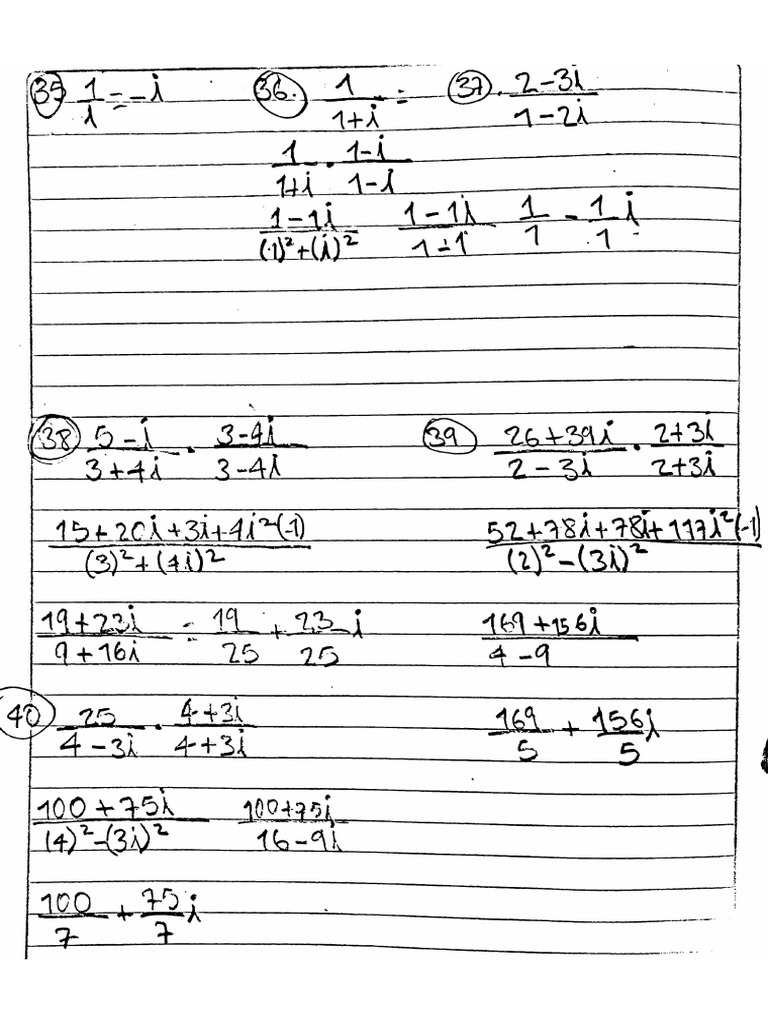 35 1/i = -i
36. 1/(1+i) =
1/(1+i) · (1-i)/(1-i)
(1-1i)/((1)²+(i)²) (1-1i)/(1-1) 1/1 - 1/1 i
37. (2-3i)/(1-2i)
38 (5-i)/(3+4i) · (3-4i)/(3-4i)
(15+20i+3i+4i²(-1))/((3)²+(4i)²)
(19+23i)/(9+16i) = 19/25 + 23/25 i
39 (26+39i)/(2-3i) · (2+3i)/(2+3i)
(52+78i+78i+117i²(-1))/((2)²-(3i)²)
(169+156i)/(4-9)
169/5 + 156/5 i
40 25/(4-3i) · (4+3i)/(4+3i)
(100+75i)/((4)²-(3i)²) (100+75i)/(16-9i)
100/7 + 75/7 i